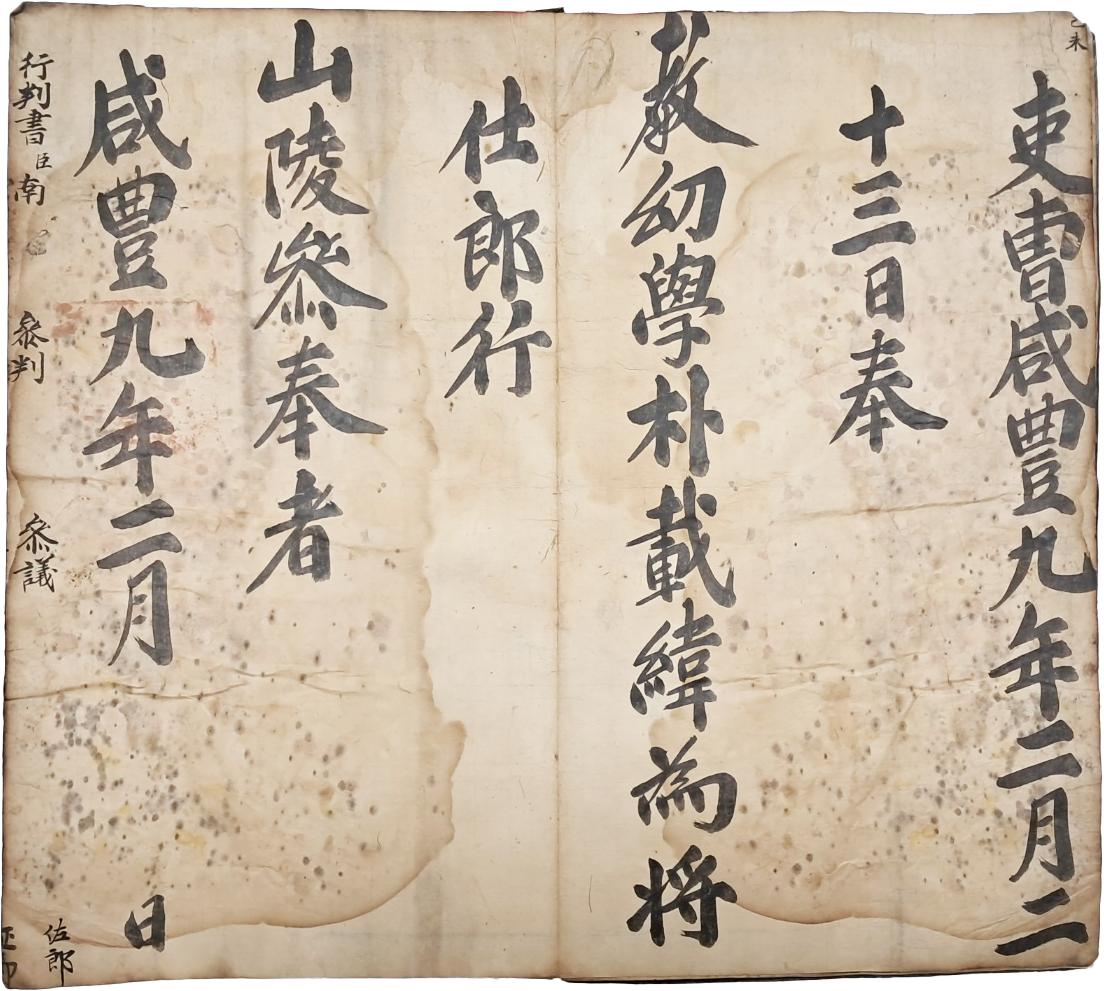 乙未
吏曹咸豐九年二月二
十三日奉
教幼學朴載緯為將
仕郎行
山陵參奉者
咸豐九年二月 日
行判書臣南 參判 參議
佐郎
正郎